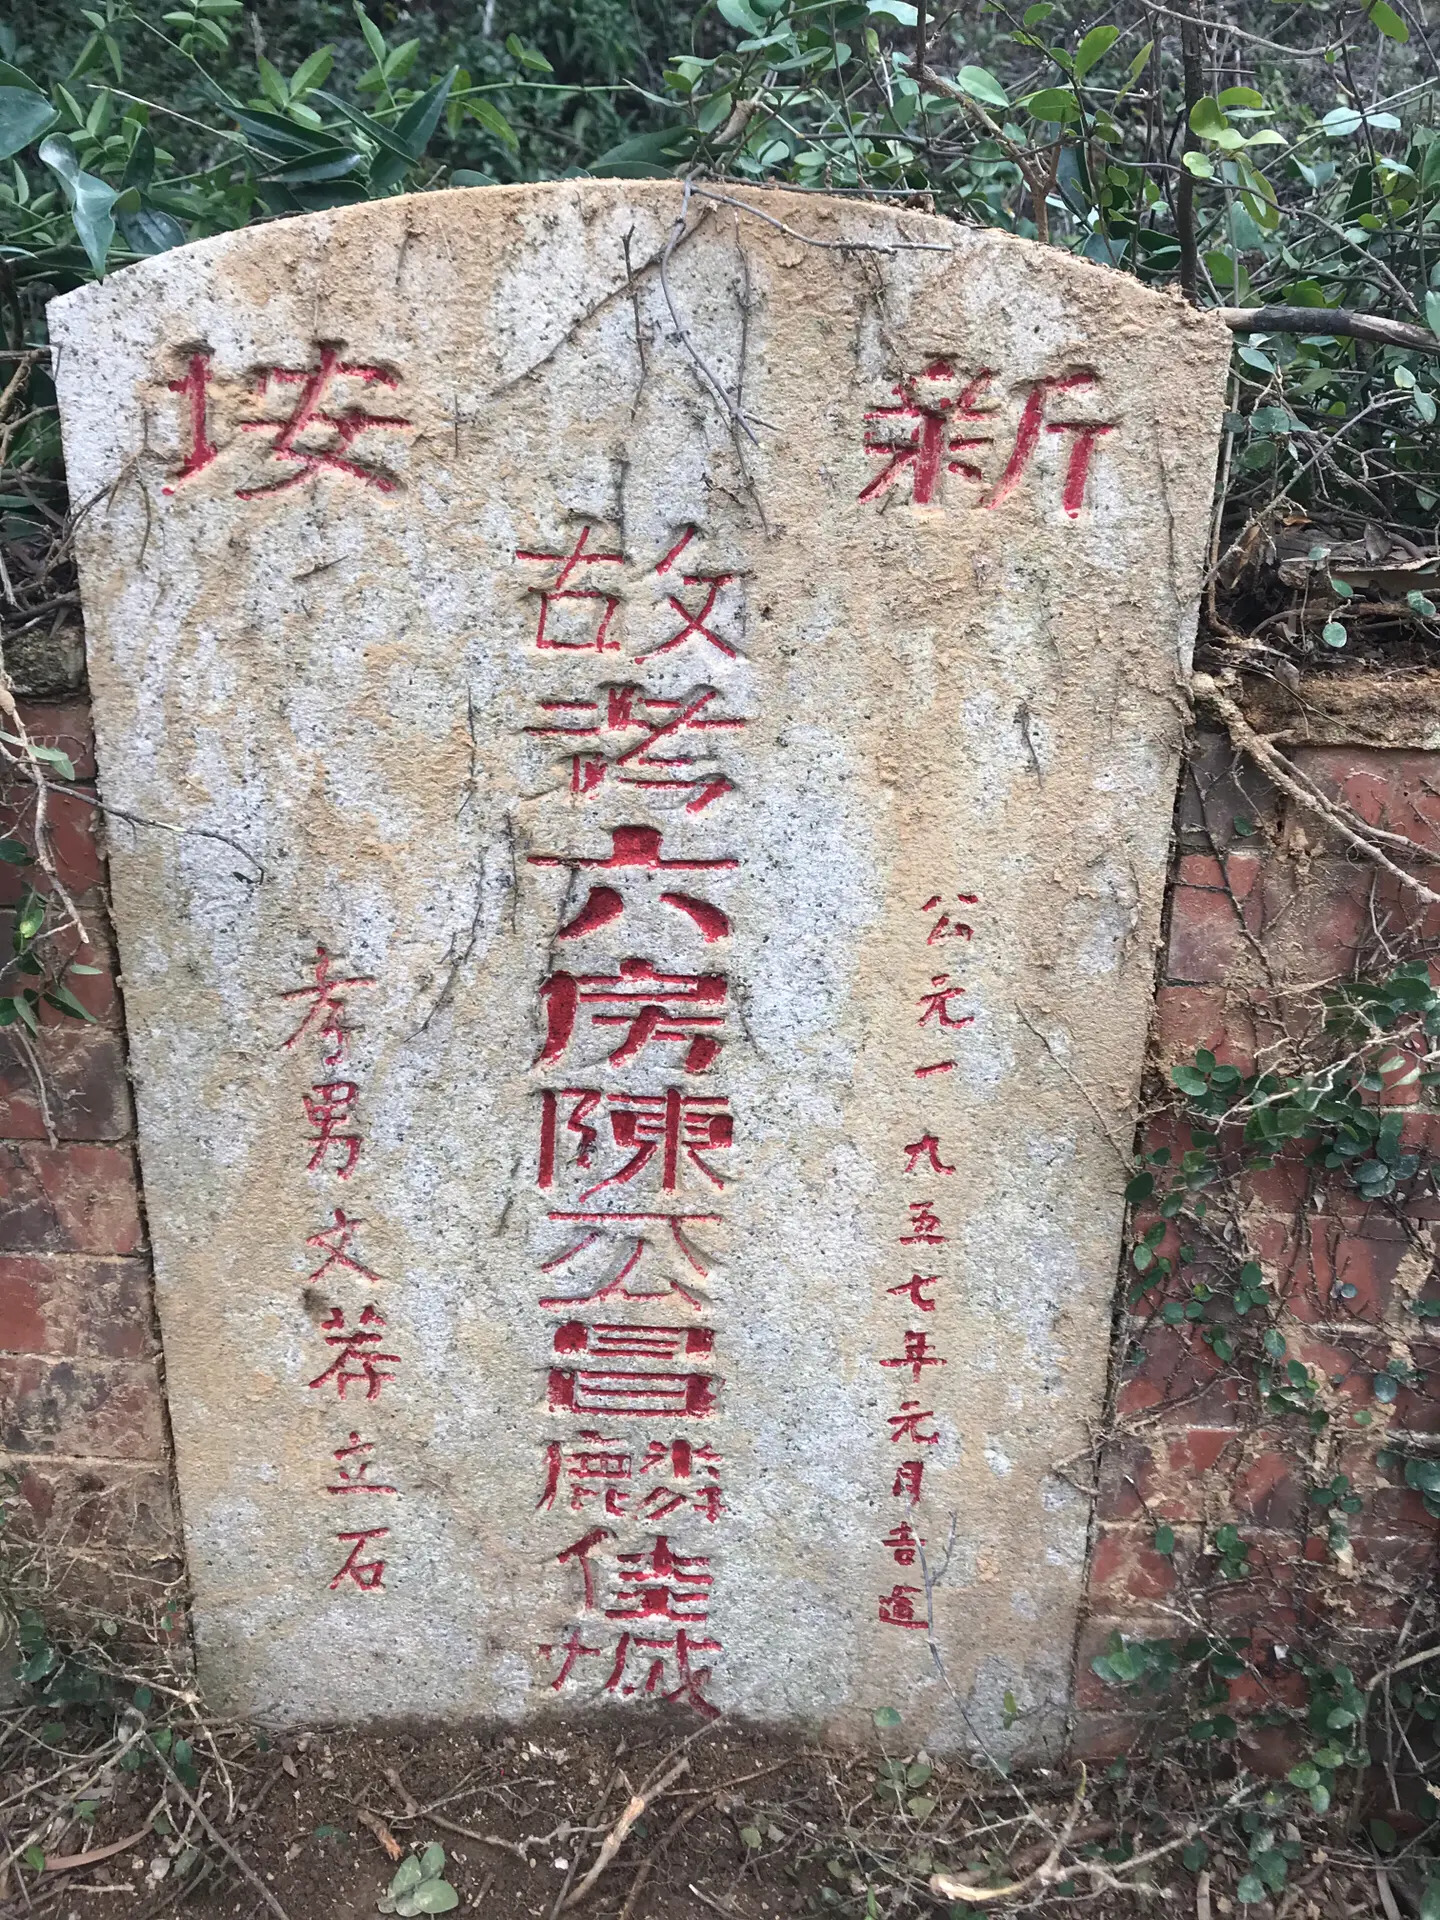 新垵
公元一九五七年元月吉
故考六房陳公昌麟佳城
孝男文莽立石